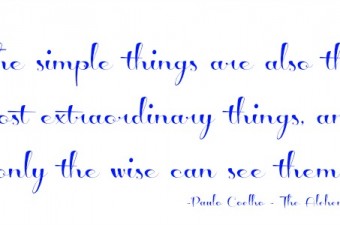 he simple things are also th
ost extraordinary things, an
only the wise can see them
-Paulo Coelho - The Alchem